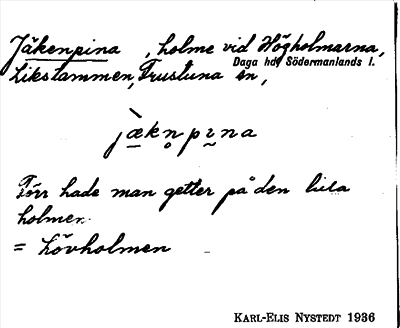 Jäkenpina, holme vid Högholmarna,
Daga hd, Södermanlands l.
Likstammen, Frustuna sn,
jæknpına
Förr hade man getter på den lilla
holmen.
= Lövholmen
KARL-ELIS NYSTEDT 1936